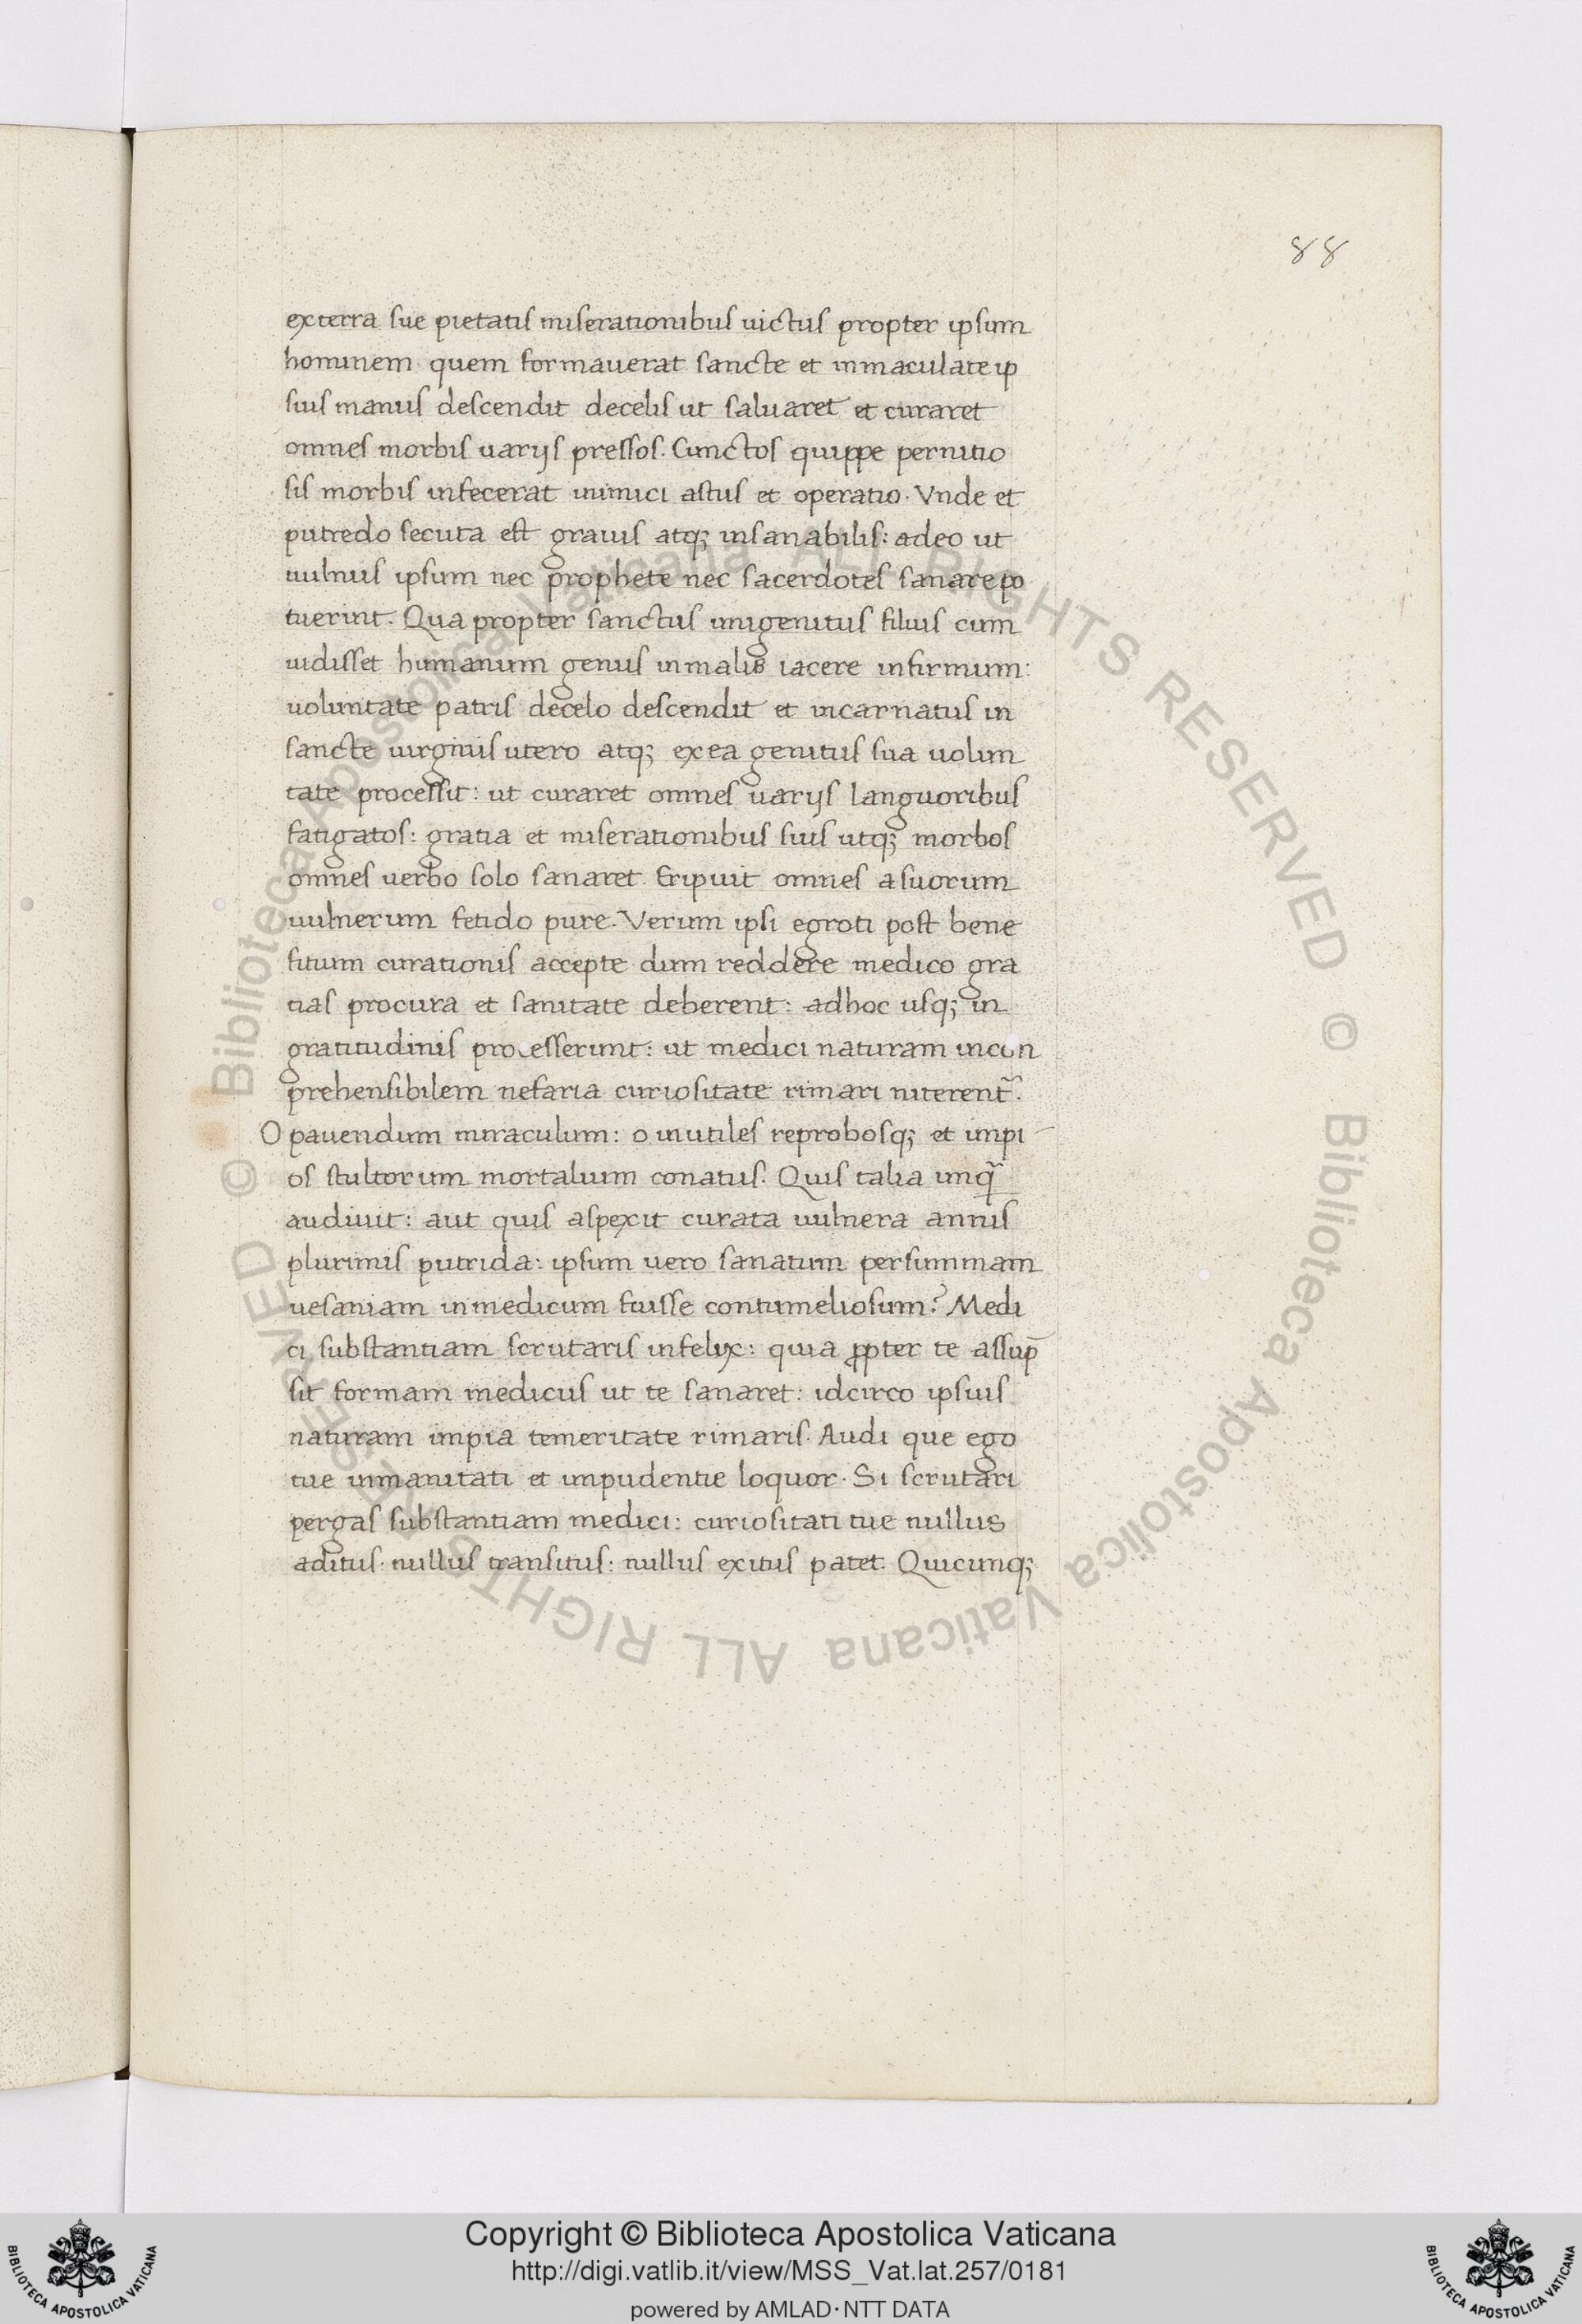 88
exterra sue pietatis miserationibus uictus propter ipsum
hominem quem formauerat sancte et inmaculate ip
sius manus descendit decelis ut saluaret et curaret
omnes morbis uarijs pressos. Cunctos quippe pernitio
sis morbis infecerat inimici astus et operatio. Vnde et
putredo secuta est grauis atq; insanabilis: adeo ut
uulnus ipsum nec prophete nec sacerdotes sanare po
tuerint. Qua propter sanctus unigenitus filius cum
uidisset humanum genus inmalis iacere infirmum:
uoluntate patris decelo descendit et incarnatus in
sancte uirginis utero atq; exea genitus sua uolun
tate processit: ut curaret omnes uarijs languoribus
fatigatos: gratia et miserationibus suis utq; morbos
omnes uerbo solo sanaret. Eripuit omnes asuorum
uulnerum fetido pure. Verum ipsi egroti post bene
fitium curationis accepte dum reddere medico gra
tias procura et sanitate deberent: adhoc usq; in
gratitudinis processerunt: ut medici naturam incon
prehensibilem nefaria curiositate rimari niterent̃.
O pauendum miraculum: o inutiles reprobosq; et impi
os stultorum mortalium conatus. Quis talia unq̃
audiuit: aut quis aspexit curata uulnera annis
plurimis putrida: ipsum uero sanatum persummam
uesaniam inmedicum fuisse contumeliosum? Medi
ci substantiam scrutaris infelix: quia ꝓpter te assup̄
sit formam medicus ut te sanaret: idcirco ipsius
naturam impia temeritate rimaris. Audi que ego
tue inmanitati et impudentie loquor. Si scrutari
pergas substantiam medici: curiositati tue nullus
aditus. nullus transitus: nullus exitus patet. Quicunq;
© Biblioteca Apostolica Vaticana ALL RIGHTS RESERVED © Biblioteca Apostolica Vaticana ALL RIGHTS RESERVED
Copyright © Biblioteca Apostolica Vaticana
http://digi.vatlib.it/view/MSS_Vat.lat.257/0181
powered by AMLAD·NTT DATA
BIBLIOTECA APOSTOLICA VATICANA
BIBLIOTECA APOSTOLICA VATICANA